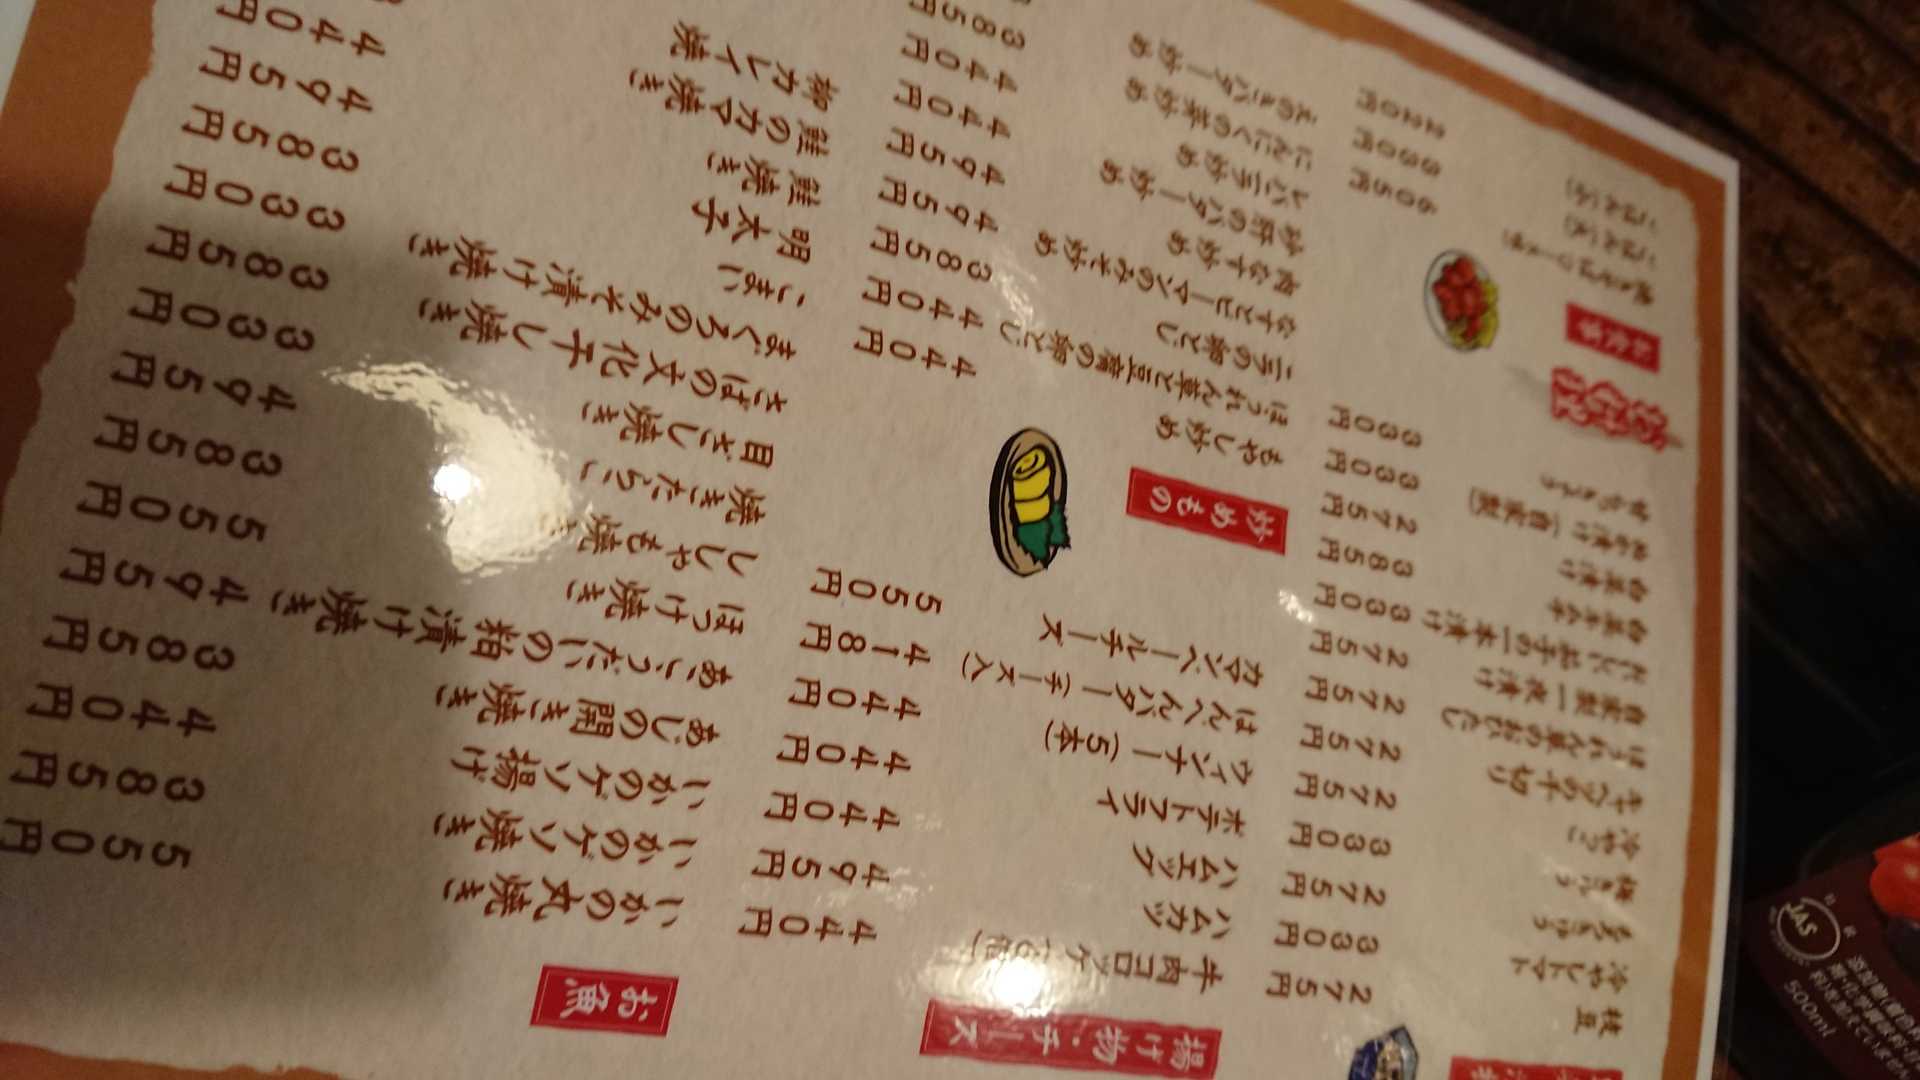 枝豆 275円
冷やしトマト 330円
もろきゅう 275円
梅きゅう 330円
冷やっこ 275円
キャベツの千切り 275円
ほうれん草のおひたし 275円
自家製一夜漬け 275円
茄子の一本漬け 330円
白菜キムチ 385円
白菜漬け 275円
ぬか漬け(自家製) 330円
らっきょう 330円
お食事
焼きそば(ソース味) 605円
ごはん(大) 330円
ごはん(小) 220円
揚げ物・チーズ
牛肉コロッケ 440円
ハムカツ 495円
ハムエッグ 440円
ポテトフライ 440円
ウィンナー(5本) 440円
はんぺんバター(チーズ入) 418円
カマンベールチーズ 550円
炒めもの
もやし炒め 440円
ほうれん草と豆腐の卵とじ 440円
ニラの卵とじ 385円
なすとピーマンのみそ炒め 495円
肉なす炒め 495円
砂肝のバター炒め 440円
レバニラ炒め 440円
にんにくの芽炒め 385円
えのきバター炒め
お魚
いかの丸焼き 550円
いかのゲソ焼き 385円
いかのゲソ揚げ 440円
あじの開き焼き 385円
あこうだいの粕漬け焼き 495円
ほっけ焼き 550円
ししゃも焼き 385円
焼きたらこ 495円
目ざし焼き 330円
さばの文化干し焼き 385円
まぐろのみそ漬け焼き 330円
こまい 385円
明太子 495円
鮭焼き 440円
鮭のカマ焼き
柳カレイ焼
JAS
500ml